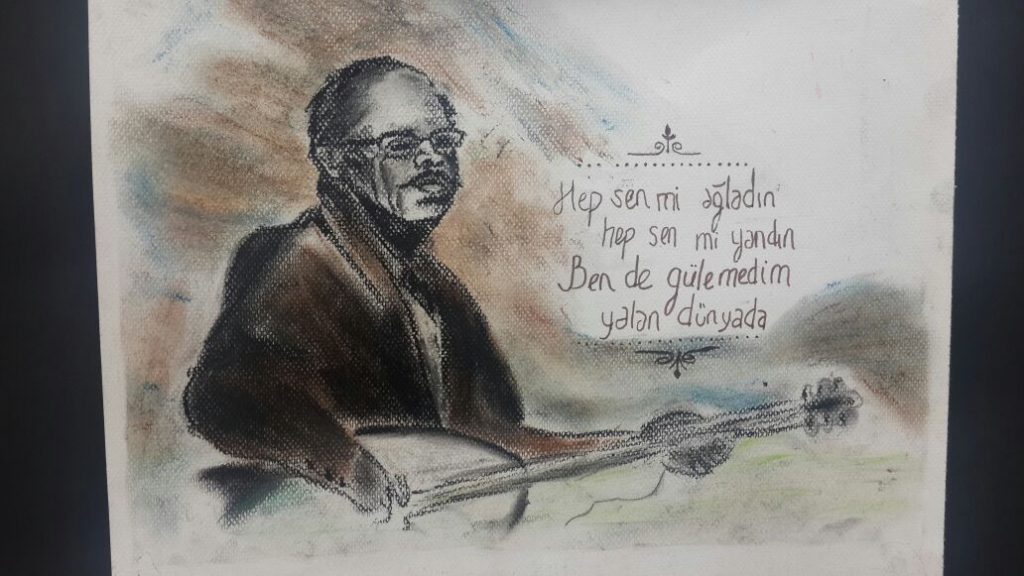 Hep sen mi ağladın
hep sen mi yandın
Ben de gülemedim
yalan dünyada